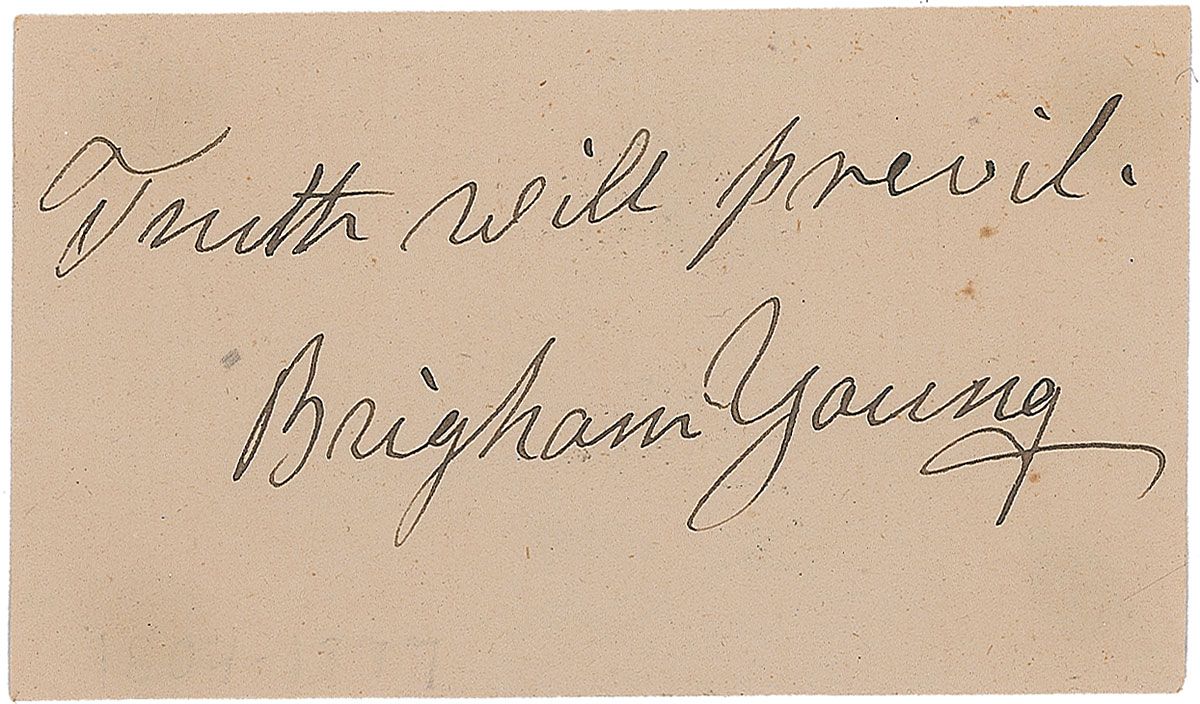 Truth will previl.
Brigham Young